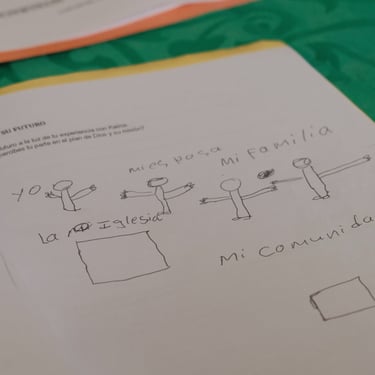 SU FUTURO
futuro a la luz de tu experiencia con Kairos
percibes tu parte en el plan de Dios y su misión?
yo
mi esposa
Mi Familia
La Iglesia
Mi comunida